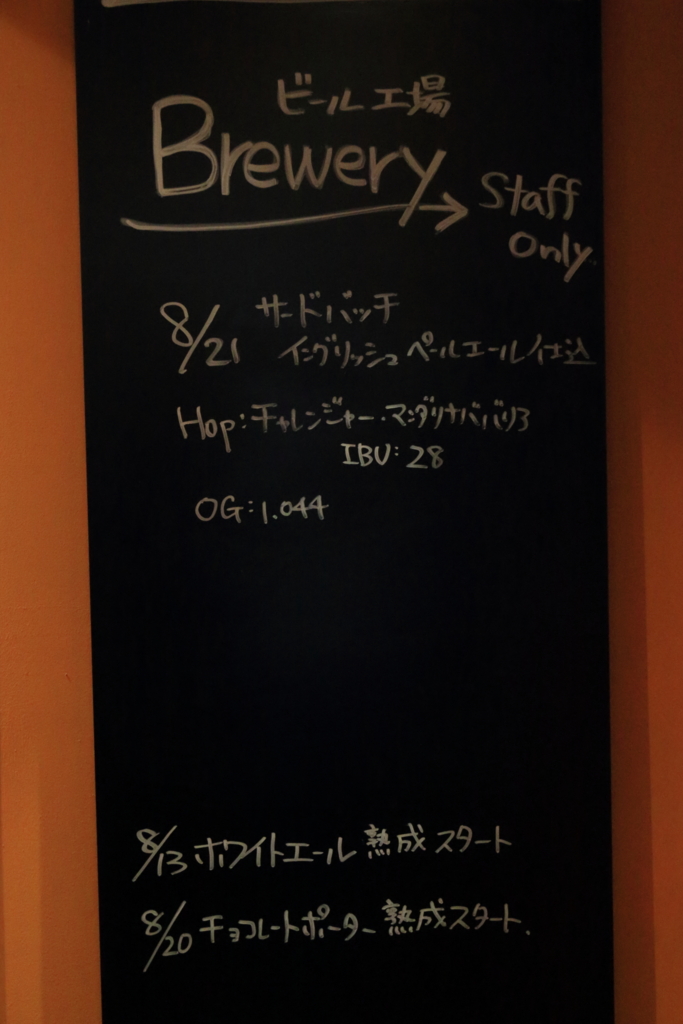 ビール工場
Brewery
Staff
Only
8/21 サードバッチ
イングリッシュペールエール仕込
Hop:チャレンジャー・マンダリナババリア
IBU:28
OG:1.044
8/13 ホワイトエール 熟成スタート
8/20 チョコレートポーター 熟成スタート.